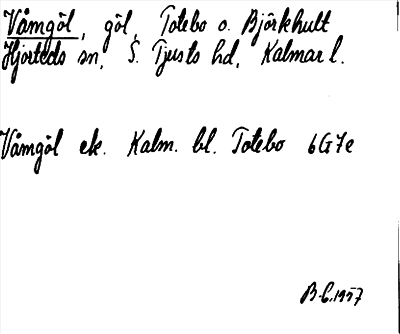 Våmgöl, göl, Totebo o. Björkhult
Hjorteds sn, S. Tjusts hd, Kalmar l.
Våmgöl ek. Kalm. bl. Totebo 6G7e
B-L.1957